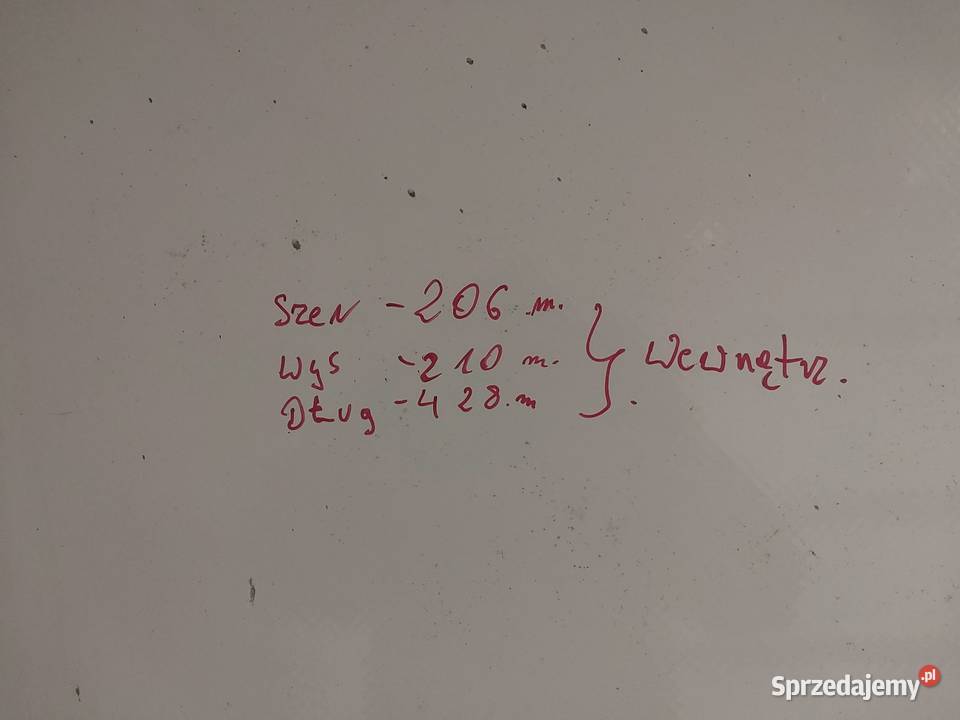 Szer - 206 m.
Wys - 210 m.
Dług - 428.m
} Wewnątrz.
Sprzedajemy.pl